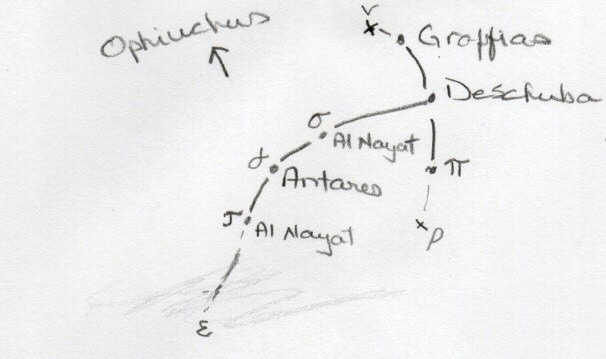 Ophiuchus
ν
Graffias
Deschuba
σ
Al Nayat
α
Antares
π
τ
Al Nayat
ρ
ε